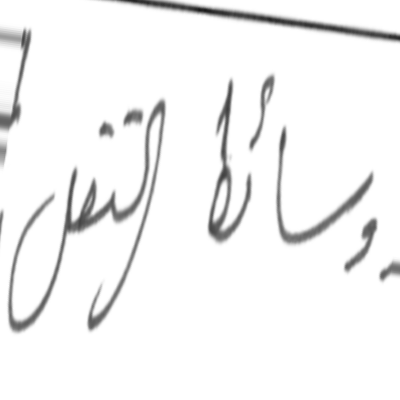 وسائل التنقل